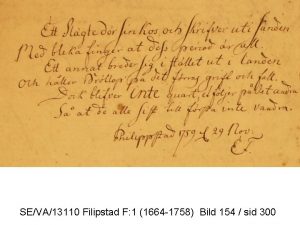 Ett Slägte dör hen kos och skrifver uti Sanden
Med bleka finger at dess period är all.
Ett annat breder sig i stället ut i landen
Och håller Bröllop på det förras grift och fall.
Dock blefver inte qvart, följer på det andra
Så at de alle sist till första inte vandra.
Philippstad 1759 d 29 Nov.
SE/VA/13110 Filipstad F:1 (1664-1758) Bild 154 / sid 300